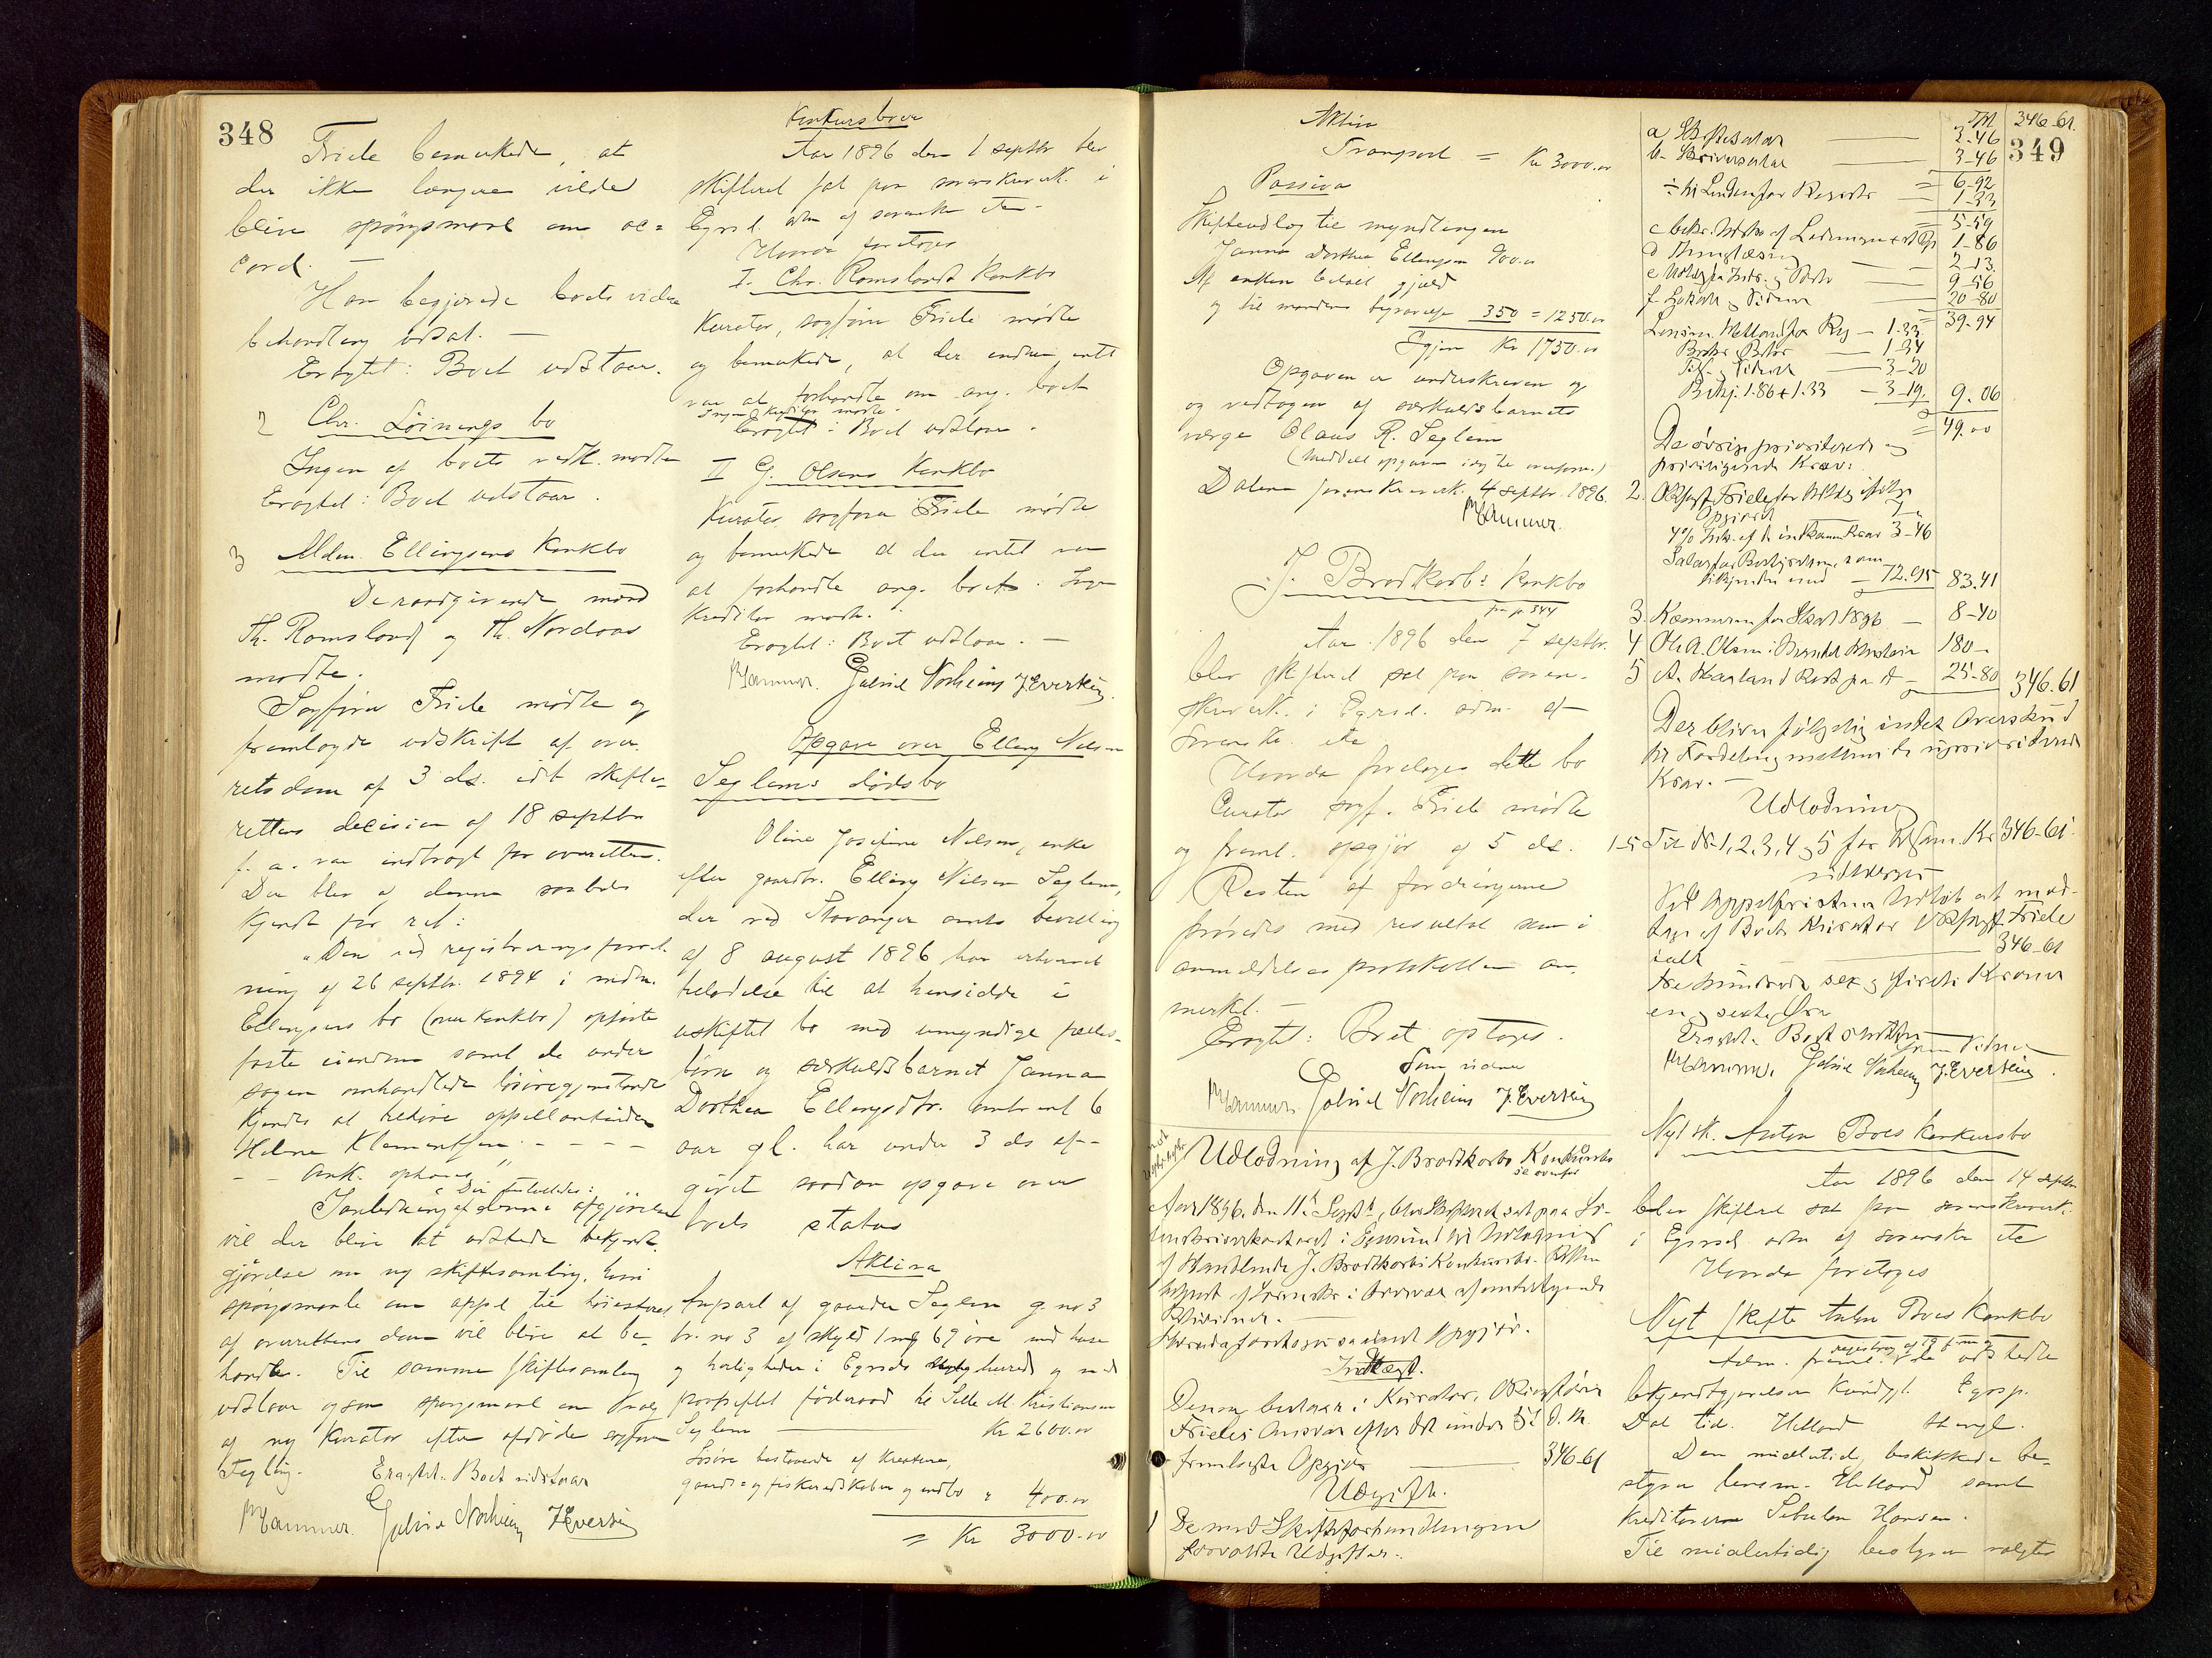 348
Friele bemærkede, at
der ikke længere vilde
blive spørgsmaal om ac=
cord. —
Han begjærede boets videre
behandling udsat. —
Eragtet: Boet udstaar.
2 Chr. Löinings bo
Ingen af boets vedk. mødte
Eragtet: Boet udstaar.
3 Alden Ellingsens Konkbo
De raadgivende mænd
Th. Romsland og Th. Nordaas
mødte.
Sagfører Friele mødte og
fremlagde udskrift af over
retsdom af 3 ds. idet skifte-
rettens decision af 18 septbr
f. a. var indbragt for overretten.
Der blev af denne saaledes
kjendt for ret:
"Den ved registreringsforret
ning af 26 septbr. 1894 i
Ellingsens bo (nu konkbo) opførte
faste eiendom samt de under
sagen omhandlede løsøregjenstande
kjendes at tilhøre appellantinden
Helene Klementsen - - - -
- - Ank. ophæves"
Der forholdes:
I anledning af denne afgjørelse
vil der blive at udstede bekjendt.
gjørelse om ny skiftesamling, hvori
spørgsmaalet om appel til høiesteret
af overrettens dom vil blive at be-
handle. Til samme skiftesamling
udstaar ogsaa spørgsmaal om valg
af ny kurator efter afdøde sagfører
Eragtet: Boet udstaar
Hammer. Gabriel Norheim J. Eversen
Konkursboer
Aar 1896 den 1 septbr blev
skifteret sat paa sorenskriverk. i
Egers. adm af sorenskr. etc.
Hvorda foretoges
I. Chr. Romslands Konkbo
Kurator, sagfører Friele mødte
og bemærkede, at der endnu intet
var at forhandle om ang. boet
Ingen kreditor mødte.
Eragtet: Boet udstaar.
II G. Olsens Konkbo
Kurator sagfører Friele mødte
og bemærkede at der intet var
at forhandle ang. boet. Ingen
kreditor mødte.
Eragtet: Boet udstaar. —
Hammer. Gabriel Norheim J Eversen
Opgave over Elling Nilsen
Seglems dødsbo
Oline Josefine Nilsen, enke
efter gaardbr. Elling Nilsen Seglem,
der ved Stavanger amts bevilling
af 8 august 1896 har erhvervet
tilladelse til at hensidde i
uskiftet bo med umyndige fælles-
børn og særkuldsbarnet Janna
Dorthea Ellingsdtr. omtrent 6
aar gl. har under 3 ds af-
givet saadan opgave over
boets status
Aktiva
Anpart af gaarden Seglem g. no 3
br. no 3 af skyld 1 mk 69 øre med huse
og herligheder i Egersds herred og med
paaheftet føderaad til Sille M. Kristiansen
Seglem — Kr 2600.00
Løsøre bestaaende af kreature,
gaards- og fiskeredskaber og indbo " 400.00
= Kr 3000.00
349
Aktiva
Transport = Kr 3000.00
Passiva
Skifteudlæg til myndlingen
Janna Dorthea Ellingsen 900.00
Af enken betalt gjæld
og til mandens begravelse 350 = 1250.00
Igjen Kr 1750.00
Opgaven er underskreven og
og vedtagen af særkuldsbarnets
værge Claus R. Seglem
Dalane sorenskriverk. 4 septbr. 1896.
Hammer.
J. Brodkorb's Konkbo
fra p. 344
Aar 1896 den 7 septbr.
blev skifteret sat paa soren-
skriverk. i Egersd. adm. af
sorenskr. etc
Hvorda foretoges dette bo
Curator sagf. Friele mødte
og freml. opgjør af 5 ds.
Resten af fordringerne
prøvedes med resultat som i
anmeldelsesprotokollen an-
mærket. —
Eragtet: Boet optages.
Som vidner
Hammer. Gabriel Norheim J. Eversen
Udlodning af J. Brodkorbs Konkursbo
se ovenfor
Aar 1896. den 11te Septbr, blev Skifteret sat paa So-
renskriverkontoret i Egersund til Udlodning
af Handlende J. Brodkorbs Konkursbo. Retten
betjent af Sorenskr. i Overvær af undertegnede
Vidner. —
Hvorda foretoges saadant Opgjør.
Indtægt.
Denne bestaar i Kurator, O.R.Sagfører
Frieles Ansvar efter det under 5te d. M.
fremlagte Opgjør — 346-61
Udgift.
1 De med Skifteforhandlingen
forvoldte Udgifter:
Tpt 346-61.
a Skiftesalær — 3-46
b Skriversalær — 3-46
= 6-92
÷ til Lensm. for Registr. = 1-33
= 5-59
c 1-86
d Thinglæsning — 2-13.
e Udlæg for Indr. og Porto — 9-56
f Lokale og Vidner — 20-80
= 39-94
Lensm. Helland for Reg — 1.33
1-34
— 3-20
Betj. 1.86 + 1.33 — 3-19. 9.06
= 49.00
De øvrige prioriterede og
priviligerede Krav:
2. ORSagf. Friele for Udlæg ifølge
Opgjøret 7 -
4% Indr. af de indkomne Krav 3-46
Salær for Bestyrelsen, som
tilkjendes med — 72.95 83.41
3. Kæmneren for Skat 1896 — 8-40
4 180-
5 A. Haaland Rest paa — 25-80 346-61
Der bliver følgelig intet Overskud
til Fordeling mellem de uprioriterede
Krav. —
Udlodning
1-5 Til No 1, 2, 3, 4 og 5 for Udgam. Kr 346-61.
Ved Appelfristens Udløb at mod-
tage af Boets Kurator ORSagf. Friele
ialt — 346-61
tre hundrede sex og firti Kroner
en og sexti Øre
Eragtet: Boet sluttet.
Som Vidner
Hammer. Gabriel Norheim J. Eversen.
Nyt sk. Anton Boes Konkursbo
Aar 1896 den 14 septbr
blev skifteret sat paa sorenskriverk.
i Egersd adm af sorenskr. etc
Hvorda foretoges
Nyt skifte Anton Boes Konkbo
Adm. freml. de udstedte
bekjendtgjørelser Egersp.
Dal. tid. Helland
Den midlertidig beskikkede be-
styrer lensm. Helland samt
kreditorerne Hansen.
Til midlertidig bestyrer valgtes